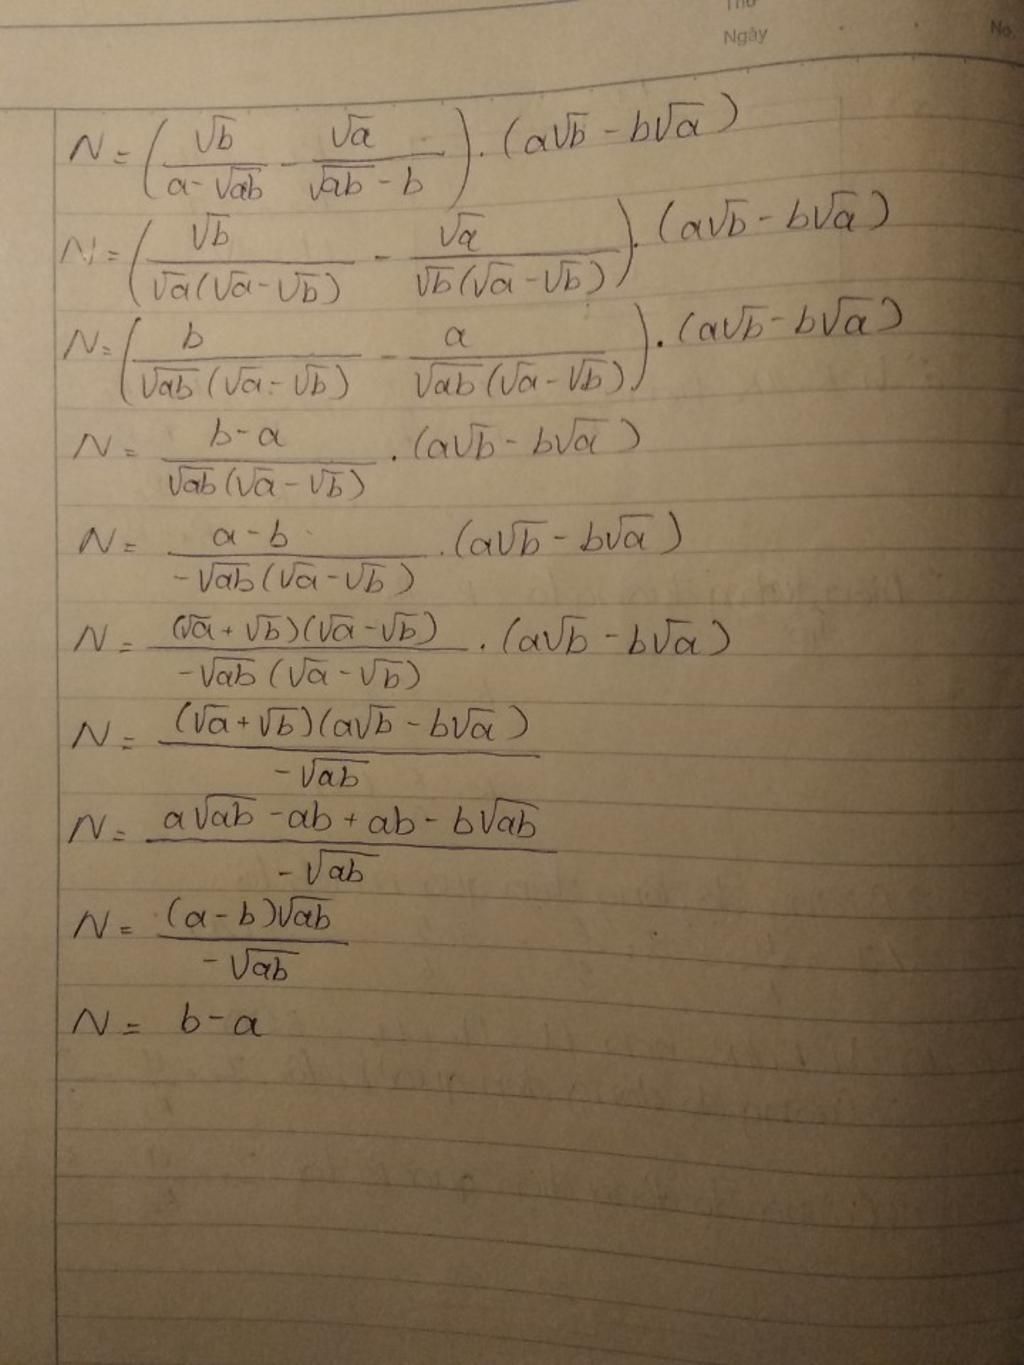 Thứ
Ngày No.
N = (√b/(a-√ab) - √a/(√ab - b)) . (a√b - b√a)
N = (√b/(√a(√a-√b)) - √a/(√b(√a-√b))) . (a√b - b√a)
N = (b/(√ab(√a-√b)) - a/(√ab(√a-√b))) . (a√b - b√a)
N = (b-a)/(√ab(√a-√b)) . (a√b - b√a)
N = (a-b)/(-√ab(√a-√b)) . (a√b - b√a)
N = (√a+√b)(√a-√b)/(-√ab(√a-√b)) . (a√b - b√a)
N = (√a+√b)(a√b - b√a)/(-√ab)
N = (a√ab - ab + ab - b√ab)/(-√ab)
N = (a-b)√ab/(-√ab)
N = b-a